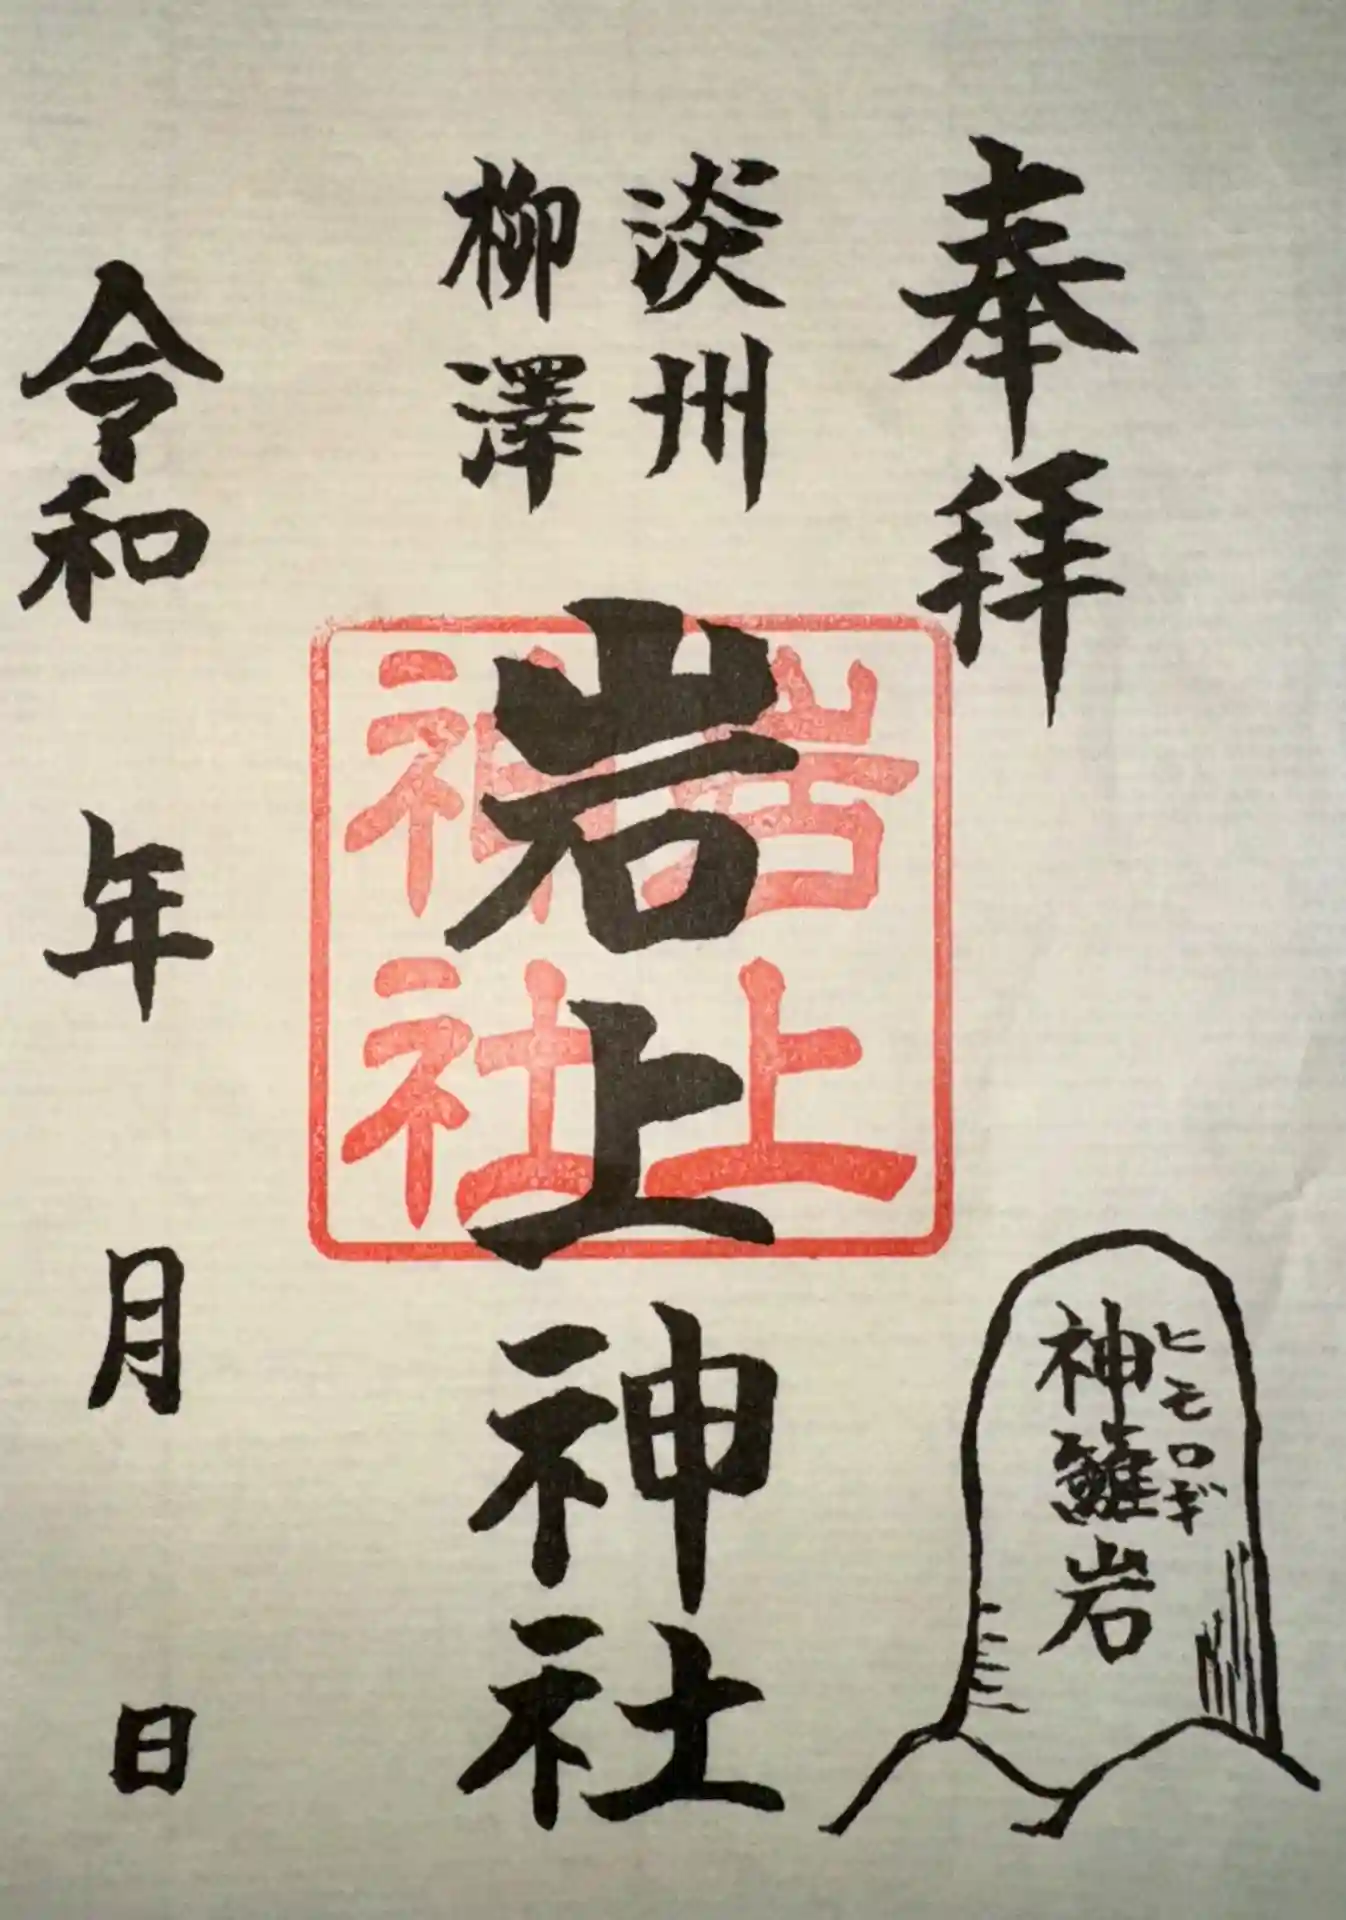 奉拝
ヒモロギ
神籬岩
淡州
柳澤
岩上神社
岩上
神社
令和 年 月 日